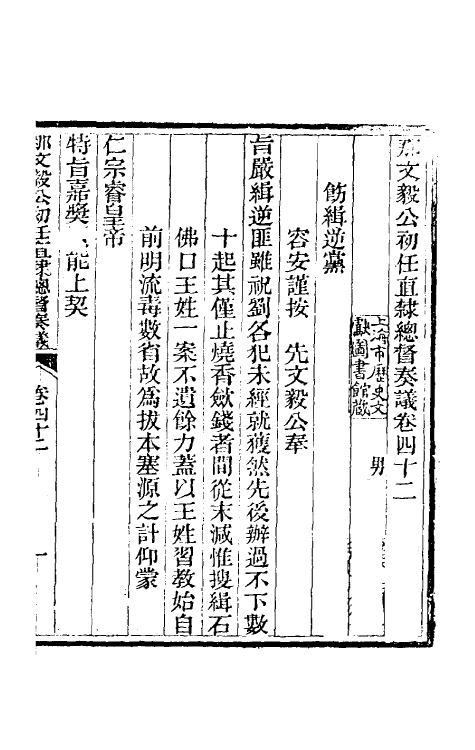 那文毅公初任直隸總督奏議卷四十二
上海市歷史文
獻圖書館藏
男
飭緝逆黨
容安謹按 先文毅公奉
旨嚴緝逆匪雖祝劉各犯未經就獲然先後辦過不下數
十起其僅止燒香歛錢者間從末減惟搜緝石
佛口王姓一案不遺餘力蓋以王姓習教始自
前明流毒數省故為拔本塞源之計仰蒙
仁宗睿皇帝
特旨嘉獎 能上契
那文毅公初任直隸總督奏議
卷四十二
一